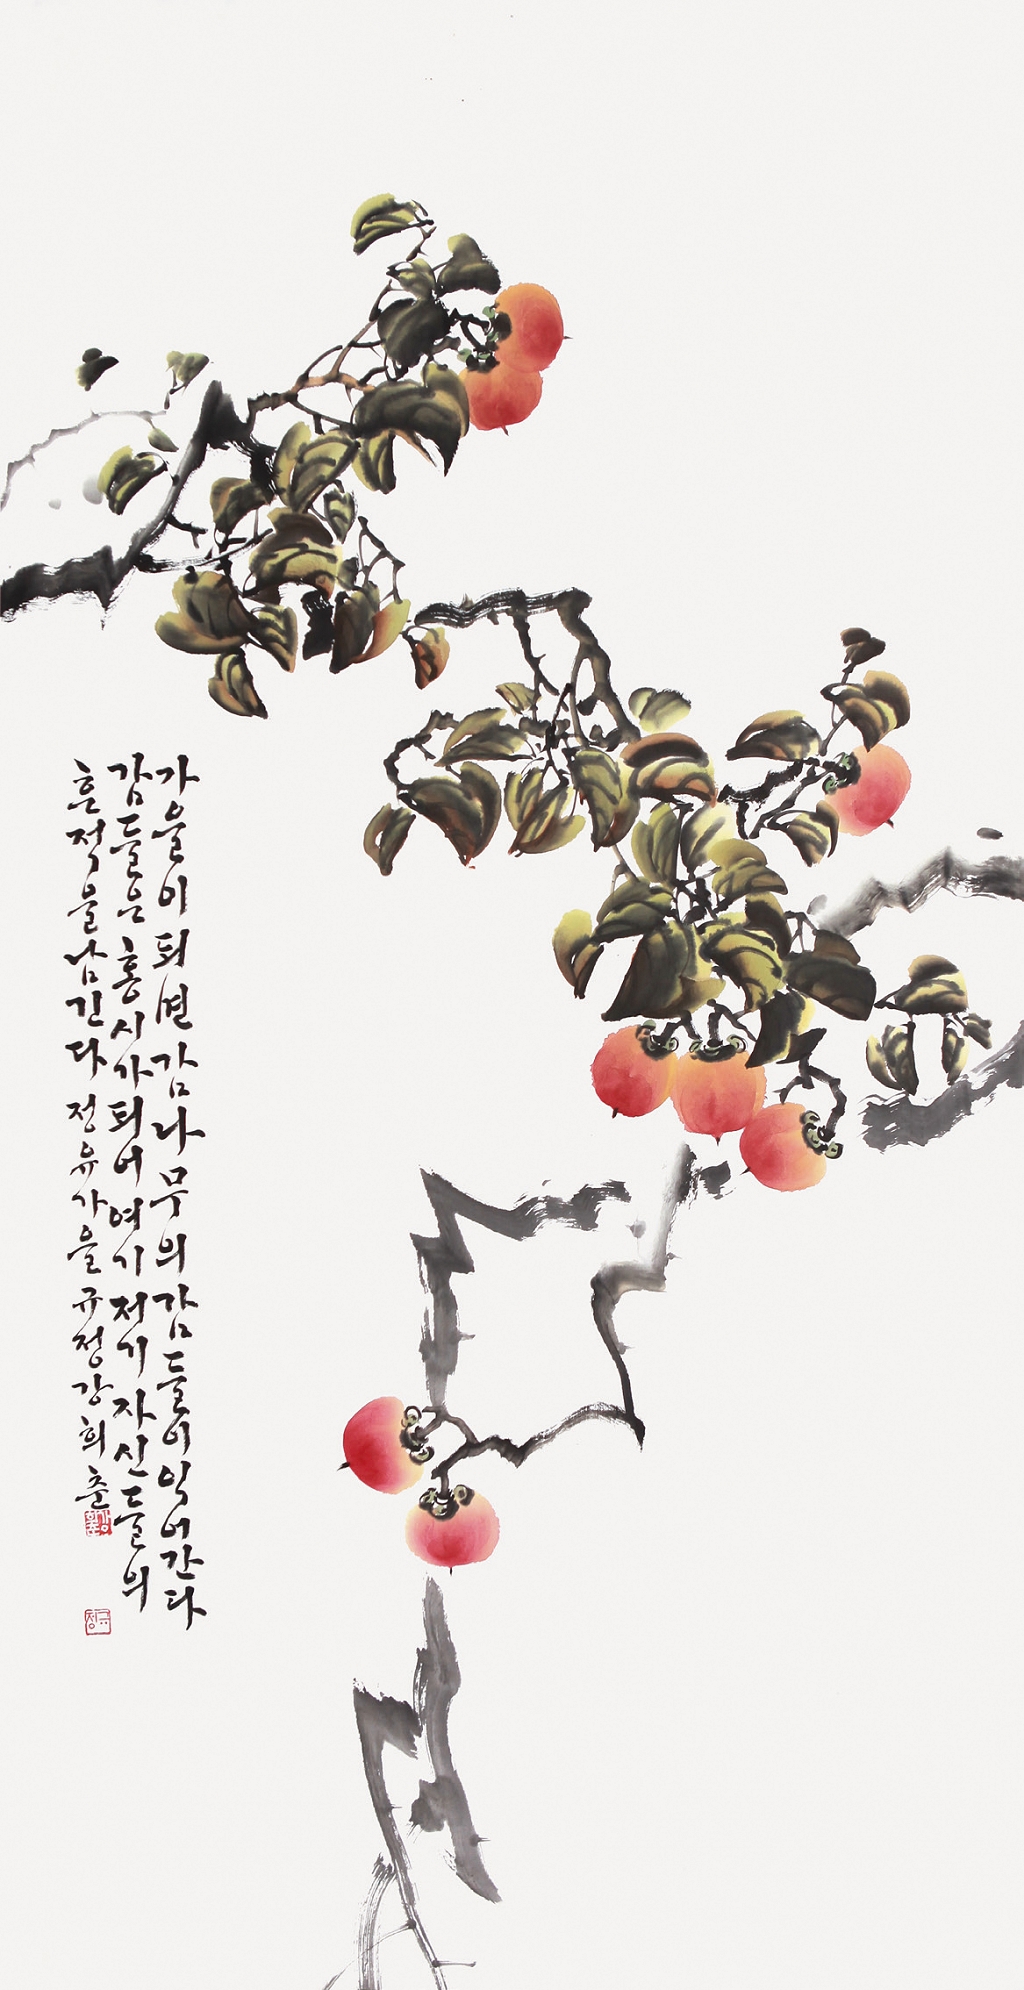 가을이 되면 감나무의 감들이 익어간다
감들은 홍시가 되어 여기저기 자신들의
흔적을 남긴다 정유 가을 규정 강희춘